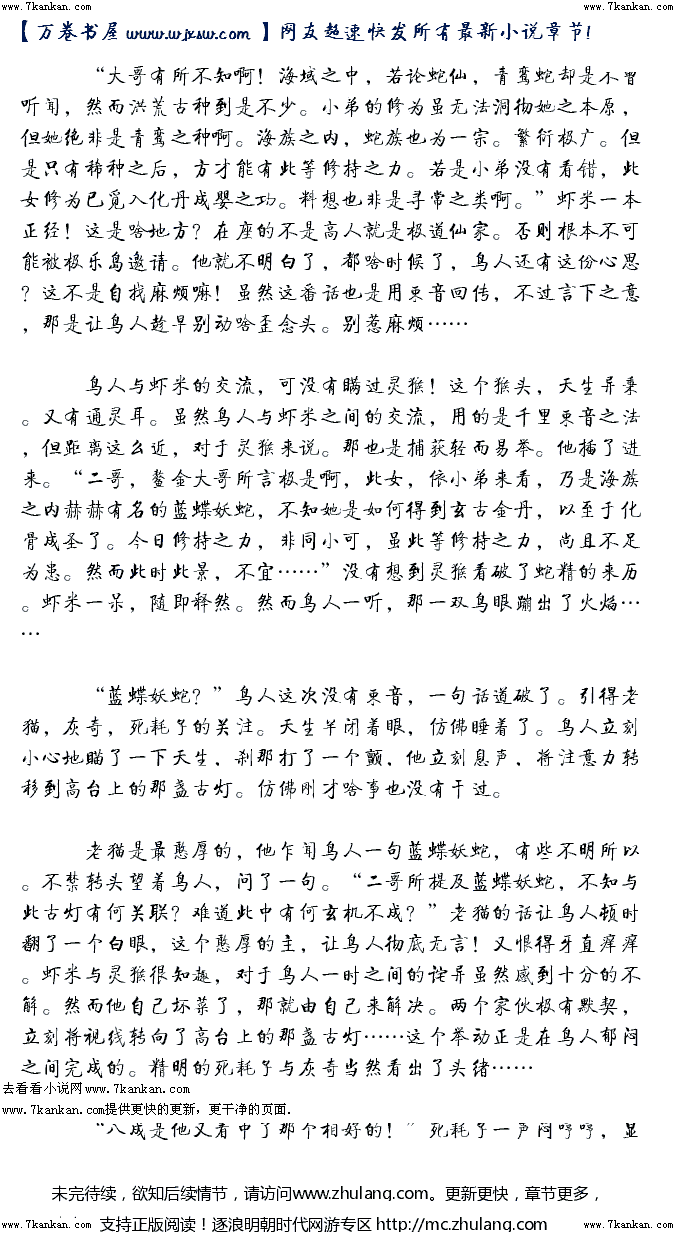 www.7kankan.com www.7kankan.com
【万卷书屋 www.wjxsw.com 】网友超速快发所有最新小说章节！
“大哥有所不知啊！海域之中，若论蛇仙，青鸾蛇却是不曾
听闻，然而洪荒古种到是不少。小弟的修为虽无法洞彻她之本原，
但她绝非是青鸾之种啊。海族之内，蛇族也为一宗。繁衍极广。但
是只有稀种之后，方才能有此等修持之力。若是小弟没有看错，此
女修为已觅入化丹成婴之功。料想也非是寻常之类啊。”虾米一本
正经！这是啥地方？在座的不是高人就是极道仙家。否则根本不可
能被极乐岛邀请。他就不明白了，都啥时候了，鸟人还有这份心思
？这不是自找麻烦嘛！虽然这番话也是用束音回传，不过言下之意
，那是让鸟人趁早别动啥歪念头。别惹麻烦……
鸟人与虾米的交流，可没有瞒过灵猴！这个猴头，天生异秉
。又有通灵耳。虽然鸟人与虾米之间的交流，用的是千里束音之法
，但距离这么近，对于灵猴来说。那也是捕获轻而易举。他插了进
来。“二哥，鳌金大哥所言极是啊，此女，依小弟来看，乃是海族
之内赫赫有名的蓝蝶妖蛇，不知她是如何得到玄古金丹，以至于化
骨成圣了。今日修持之力，非同小可，虽此等修持之力，尚且不足
为患。然而此时此景，不宜……”没有想到灵猴看破了蛇精的来历
。虾米一呆，随即释然。然而鸟人一听，那一双鸟眼蹦出了火焰…
…
“蓝蝶妖蛇？”鸟人这次没有束音，一句话道破了。引得老
猫，灰奇，死耗子的关注。天生半闭着眼，仿佛睡着了。鸟人立刻
小心地瞄了一下天生，刹那打了一个颤，他立刻息声，将注意力转
移到高台上的那盏古灯。仿佛刚才啥事也没有干过。
老猫是最憨厚的，他乍闻鸟人一句蓝蝶妖蛇，有些不明所以
。不禁转头望着鸟人，问了一句。“二哥所提及蓝蝶妖蛇，不知与
此古灯有何关联？难道此中有何玄机不成？”老猫的话让鸟人顿时
翻了一个白眼，这个憨厚的主，让鸟人彻底无言！又恨得牙直痒痒
。虾米与灵猴很知趣，对于鸟人一时之间的诧异虽然感到十分的不
解。然而他自己坏菜了，那就由自己来解决。两个家伙极有默契，
立刻将视线转向了高台上的那盏古灯……这个举动正是在鸟人郁闷
之间完成的。精明的死耗子与灰奇当然看出了头绪……
去看看小说网www.7kankan.com
www.7kankan.com提供更快的更新，更干净的页面.
“八成是他又看中了那个相好的！”死耗子一声闷哼哼，显
未完待续，欲知后续情节，请访问www.zhulang.com。更新更快，章节更多，
www.7kankan.com 支持正版阅读！逐浪明朝时代网游专区 http://mc.zhulang.com www.7kankan.com